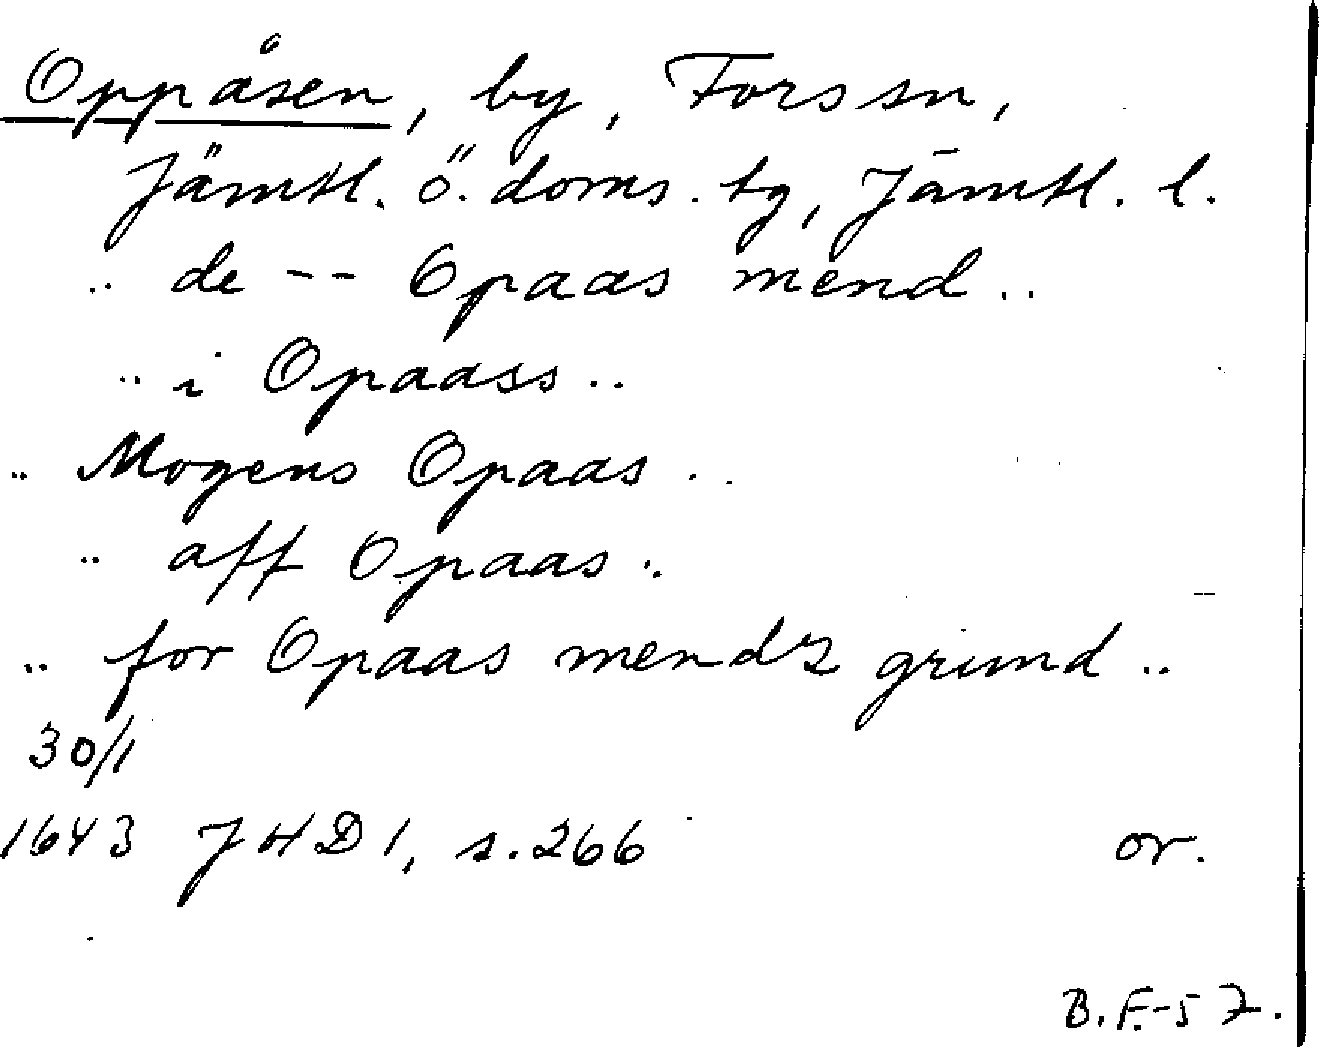 Oppåsen, by, Fors sn,
Jämtl. ö. doms. tg, Jämtl. l.
.. de -- Opaas mend ..
.. i Opaass ..
.. Mogens Opaas ..
.. aff Opaas ..
.. for Opaas mendz grund ..
30/1
1643 JHD 1, s. 266 or.
B.F.-57.